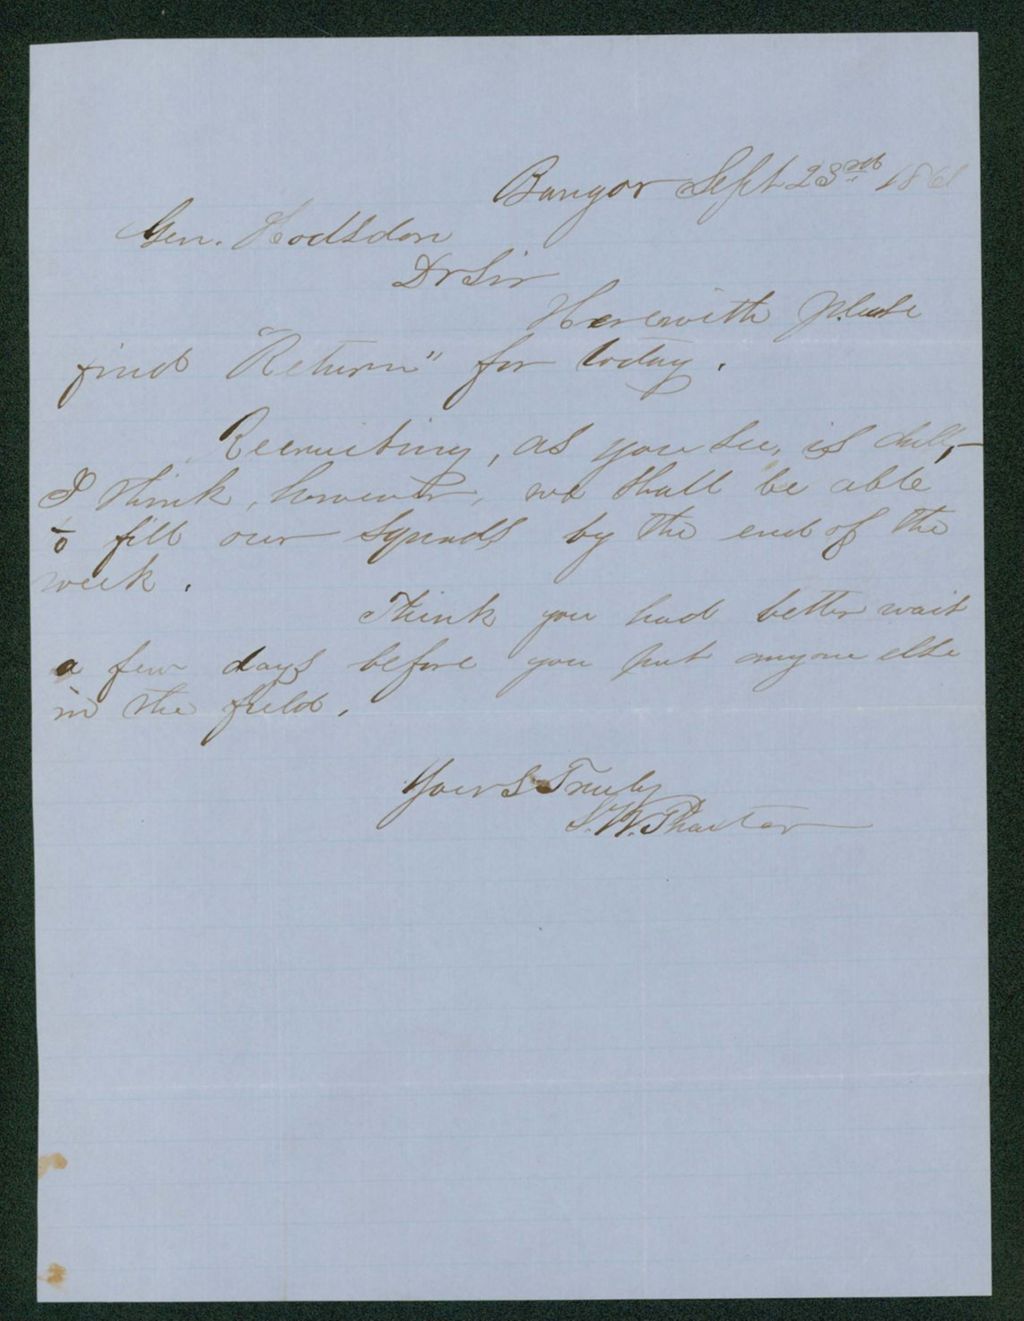 Bangor Sept 23rd 1861
Gen. Hodsdon
Dr Sir
Herewith please
find "Return" for today.
Recruiting, as you see, is dull,—
I think, however, we shall be able
to fill our squads by the end of the
week.
Think you had better wait
a few days before you put anyone else
in the field.
Yours Truly
S. W. Thaxter